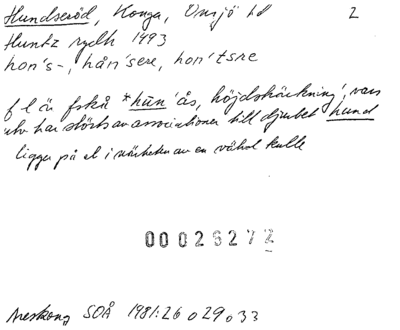 Hundseröd, Konga, Onsjö hd 2
Huntz rydh 1493
hon's-, hån'sere, hon'tsre
f l är fskå *hūn'ås, höjdsträckning', vars
utv. har störts av associationer till djuret hund
ligger på el i närheten av en välvd kulle
00026272
SOÅ 1981:26 o 29 o 33